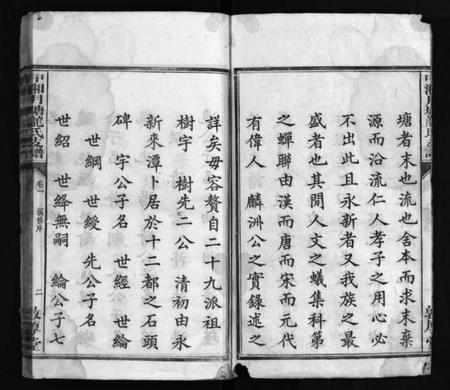 塘者末也流也舍本而求末棄
源而沿流仁人孝子之用心必
不出此且永新者又我族之最
盛者也其間人文之蟻集科第
之蟬聯由漢而唐而宋而元代
有偉人 麟洲公之實錄述之
詳矣毋容贅自二十九派祖
樹宇 樹先二公 清初由永
新來潭卜居於十二都之石頭
碑 宇公子名 世經 世綸
世綱 世綬 先公子名
世紹 世絳無嗣 綸公子七
中湘月塘龍氏支譜
卷一
二
敦厚堂